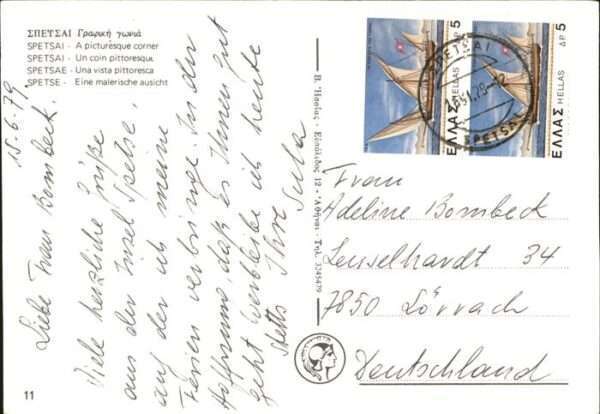 ΣΠΕΤΣΑΙ Γραφική γωνιά
SPETSAI - A picturesque corner
SPETSAI - Un coin pittoresque
SPETSAE - Una vista pittoresca
SPETSE - Eine malerische ausicht
15.6.79
Liebe Frau Bombeck.
Viele herzliche Grüße
aus der Insel Spetse,
auf der ich meine
Ferien verbringe. In der
Hoffnung, daß es Ihnen gut
geht verbleibe ich heute
stetts Ihre Sula
11
Εξαρχίδος 12 - Αθήναι - Τηλ. 3245479
ΕΛΛΑΣ HELLAS ΔΡ 5
ΕΛΛΑΣ HELLAS ΔΡ 5
SPETSAI
SPETSAI
Frau
Adeline Bombeck
Leusselhardt 34
7850 Lörrach
Deutschland